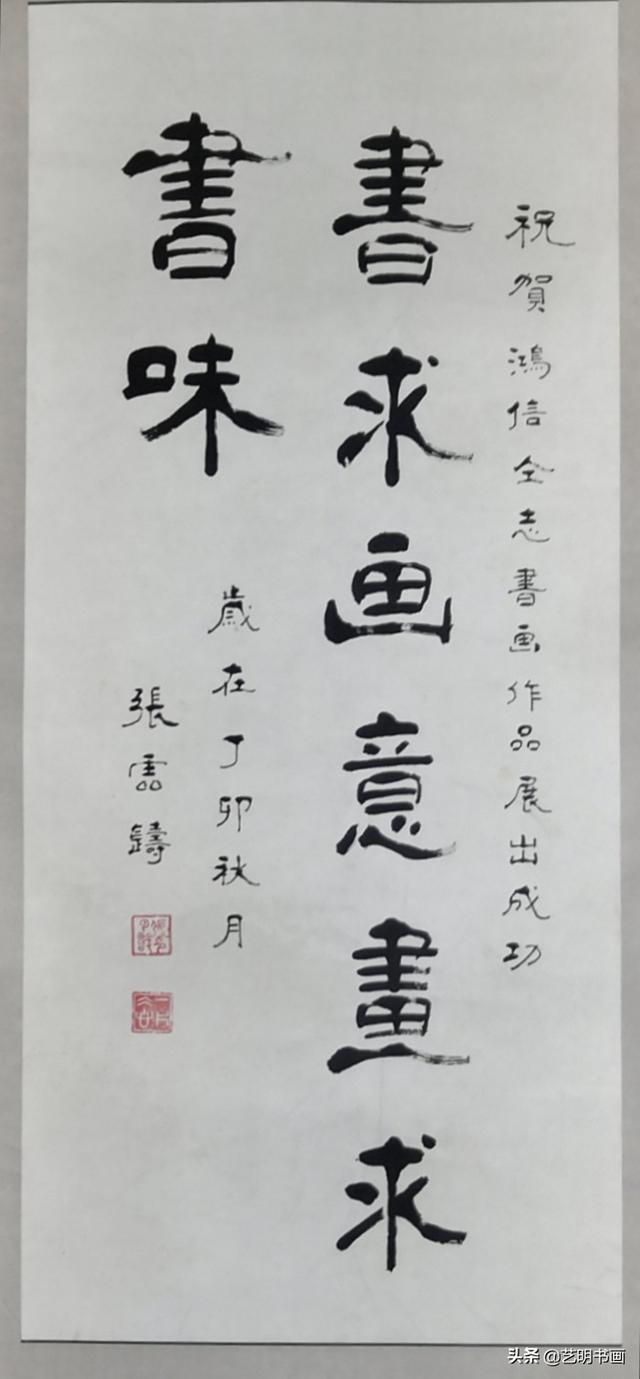 祝賀鴻信仝志書画作品展出成功
書求画意畫求
書味
歳在丁卯秋月
張雲鑄
头条 @艺明书画